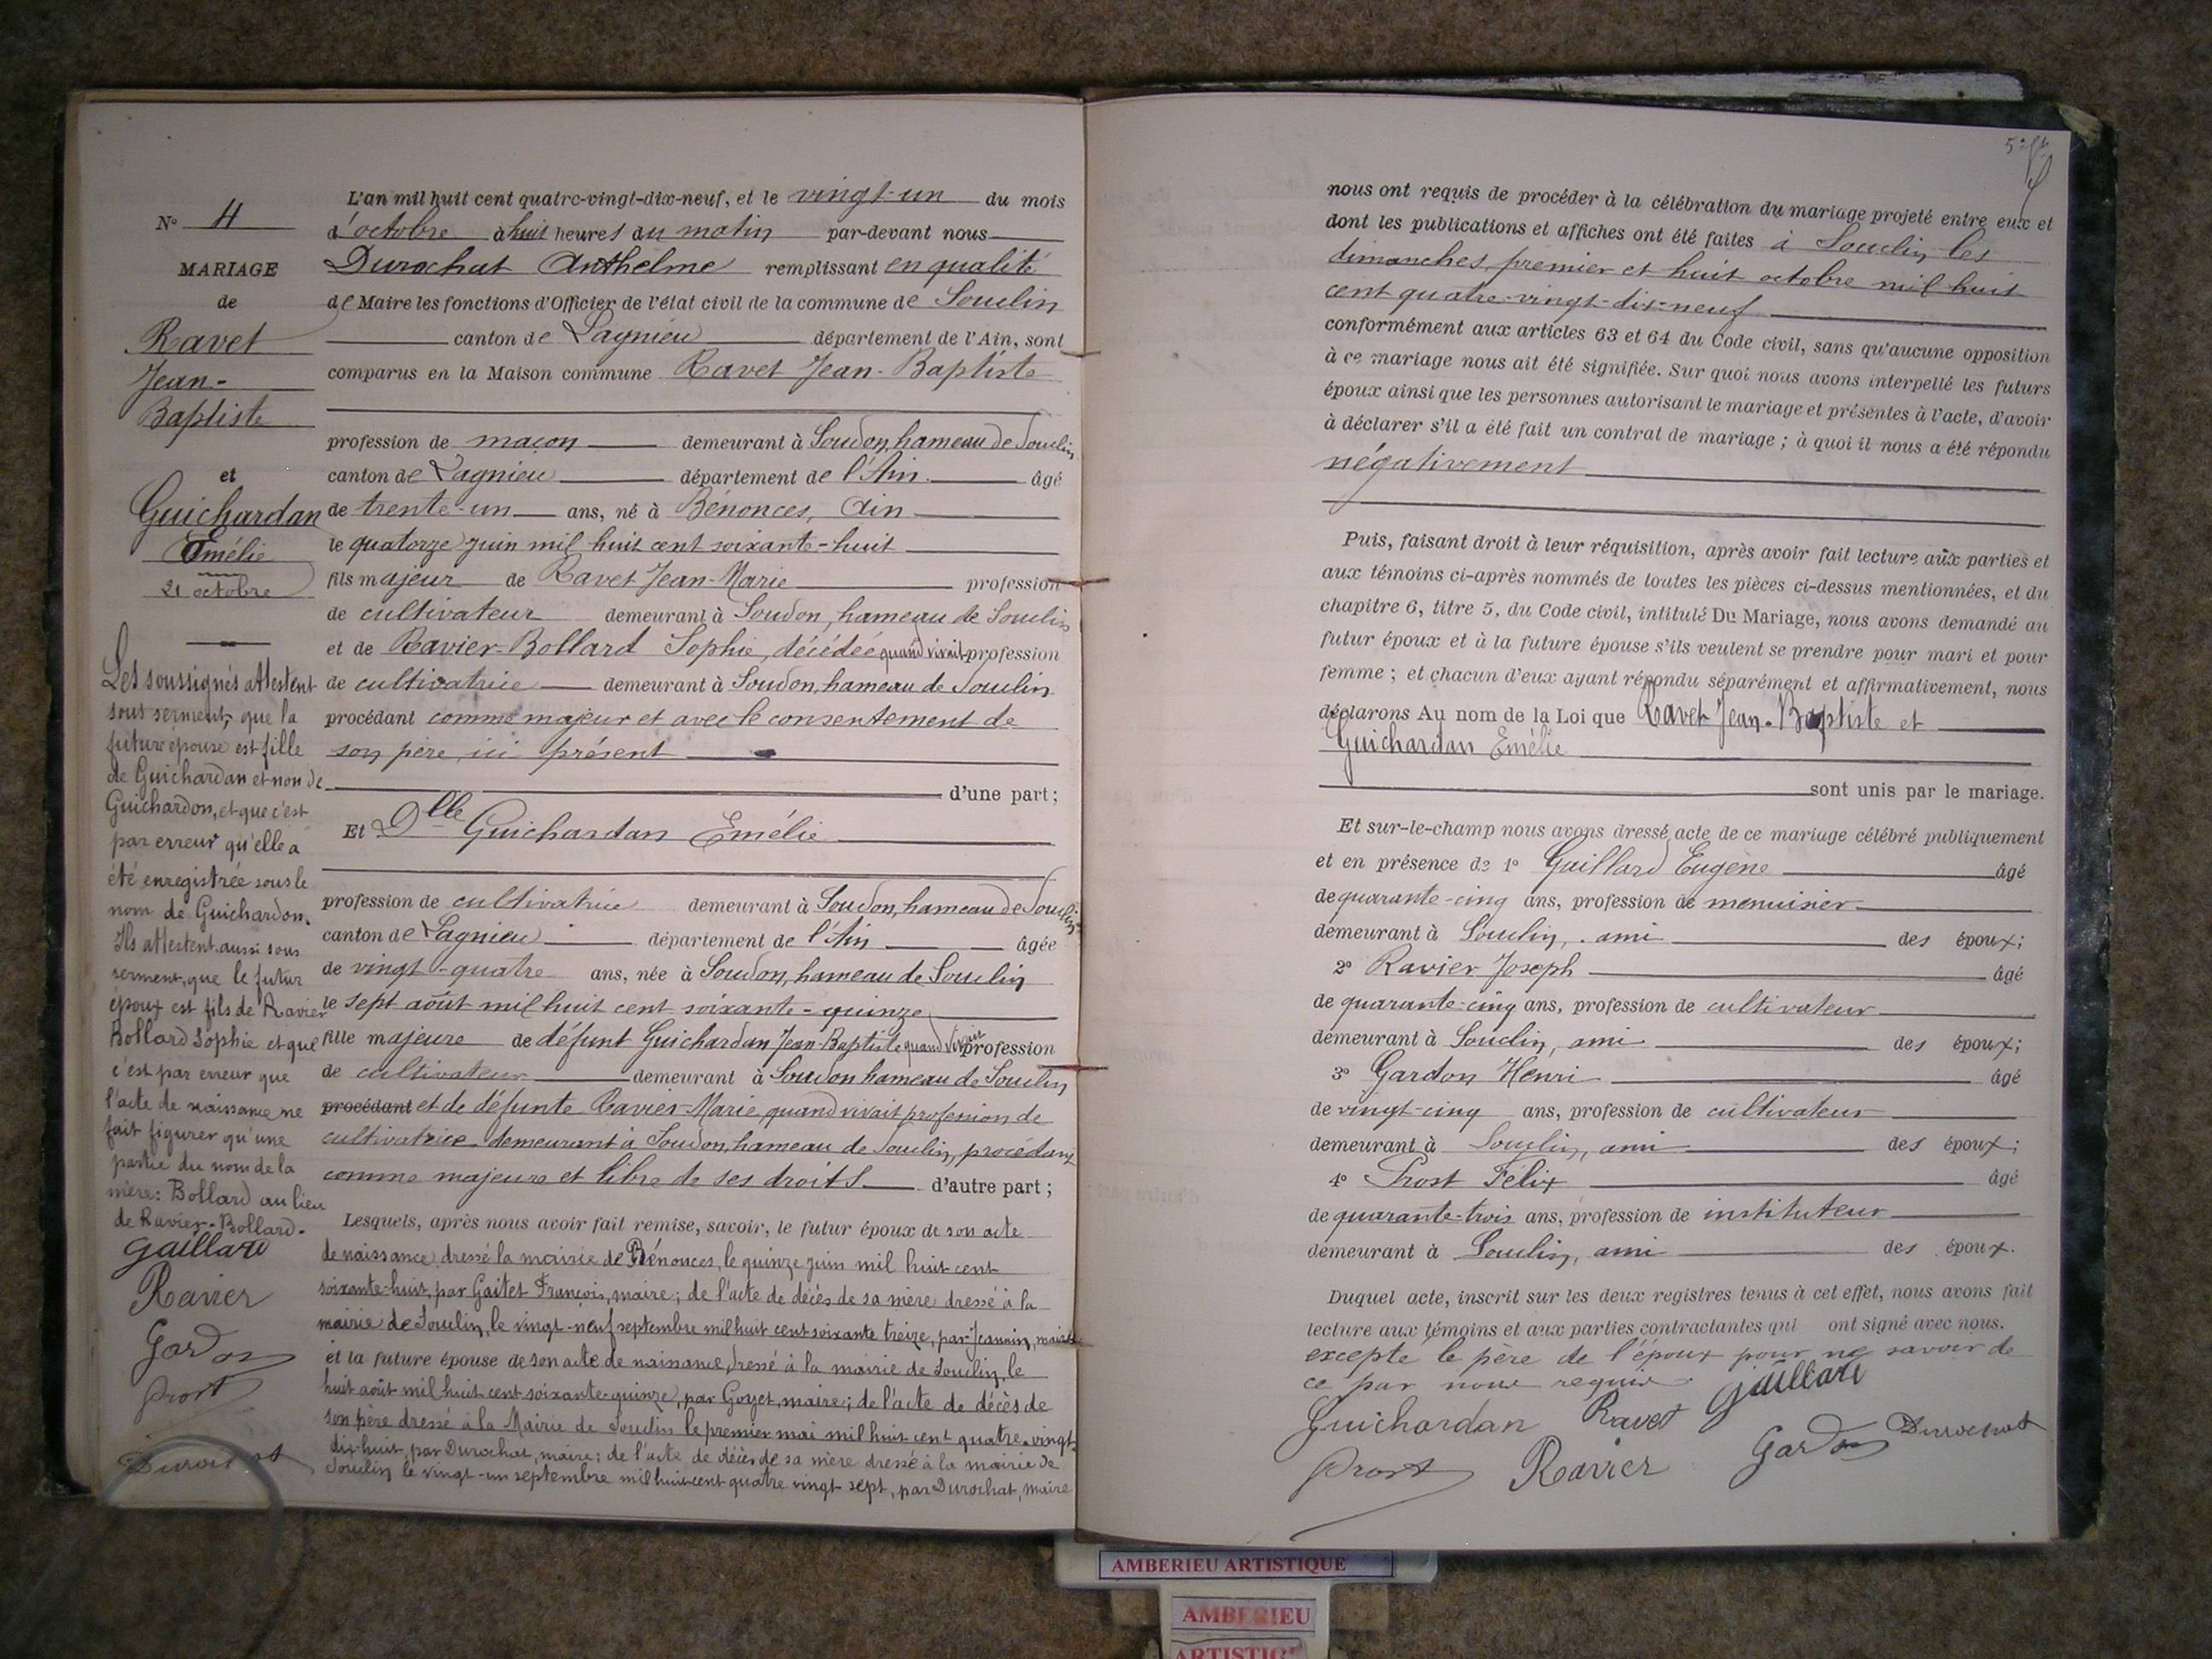 N° 4
MARIAGE
de
Ravet
Jean-
Baptiste
et
Guichardan
Emélie
21 octobre
Les soussignés attestent
sous serment, que la
future épouse est fille
de Guichardan et non de
Guichardon, et que c'est
par erreur qu'elle a
été enregistrée sous le
nom de Guichardon.
Ils attestent aussi sous
serment, que le futur
époux est fils de Ravier
Bollard Sophie et que
c'est par erreur que
l'acte de naissance ne
fait figurer qu'une
partie du nom de la
mère: Bollard au lieu
de Ravier-Bollard.
Gaillard
Ravier
Gardon
Prost
Durochat
L'an mil huit cent quatre-vingt-dix-neuf, et le vingt-un du mois
d'octobre à huit heures du matin par-devant nous
Durochat Anthelme remplissant en qualité
de Maire les fonctions d'Officier de l'état civil de la commune de Souclin
canton de Lagnieu département de l'Ain, sont
comparus en la Maison commune Ravet Jean-Baptiste
profession de maçon demeurant à Soudon, hameau de Souclin
canton de Lagnieu département de l'Ain âgé
de trente-un ans, né à Bénonces, Ain
le quatorze juin mil huit cent soixante-huit
fils majeur de Ravet Jean-Marie profession
de cultivateur demeurant à Soudon, hameau de Souclin
et de Ravier-Bollard Sophie, décédée quand vivait profession
de cultivatrice demeurant à Soudon, hameau de Souclin
procédant comme majeur et avec le consentement de
son père, ici présent
d'une part;
Et Dlle Guichardan Emélie
profession de cultivatrice demeurant à Soudon, hameau de Souclin
canton de Lagnieu département de l'Ain âgée
de vingt-quatre ans, née à Soudon, hameau de Souclin
le sept août mil huit cent soixante-quinze
fille majeure de défunt Guichardan Jean-Baptiste quand vivait profession
de cultivateur demeurant à Soudon hameau de Souclin
procédant et de défunte Ravier-Marie quand vivait profession de
cultivatrice demeurant à Soudon, hameau de Souclin, procédant
comme majeure et libre de ses droits d'autre part;
Lesquels, après nous avoir fait remise, savoir, le futur époux de son acte
de naissance dressé la mairie de Bénonces, le quinze juin mil huit cent
soixante-huit, par Gaitet François, maire; de l'acte de décès de sa mère dressé à la
mairie de Souclin, le vingt-neuf septembre mil huit cent soixante treize, par Jeannin, maire
et la future épouse de son acte de naissance, dressé à la mairie de Souclin, le
huit août mil huit cent soixante-quinze, par Goyet, maire; de l'acte de décès de
son père dressé à la Mairie de Souclin le premier mai mil huit cent quatre-vingt-
dix-huit, par Durochat, maire; de l'acte de décès de sa mère dressé à la mairie de
Souclin le vingt-un septembre mil huit cent quatre vingt sept, par Durochat, maire
nous ont requis de procéder à la célébration du mariage projeté entre eux et
dont les publications et affiches ont été faites à Souclin les
dimanches premier et huit octobre mil huit
cent quatre-vingt-dix-neuf
conformément aux articles 63 et 64 du Code civil, sans qu'aucune opposition
à ce mariage nous ait été signifiée. Sur quoi nous avons interpellé les futurs
époux ainsi que les personnes autorisant le mariage et présentes à l'acte, d'avoir
à déclarer s'il a été fait un contrat de mariage; à quoi il nous a été répondu
négativement
Puis, faisant droit à leur réquisition, après avoir fait lecture aux parties et
aux témoins ci-après nommés de toutes les pièces ci-dessus mentionnées, et du
chapitre 6, titre 5, du Code civil, intitulé Du Mariage, nous avons demandé au
futur époux et à la future épouse s'ils veulent se prendre pour mari et pour
femme; et chacun d'eux ayant répondu séparément et affirmativement, nous
déclarons Au nom de la Loi que Ravet Jean-Baptiste et
Guichardan Emélie
sont unis par le mariage.
Et sur-le-champ nous avons dressé acte de ce mariage célébré publiquement
et en présence de 1° Gaillard Eugène âgé
de quarante-cinq ans, profession de menuisier
demeurant à Souclin, ami des époux;
2° Ravier Joseph âgé
de quarante-cinq ans, profession de cultivateur
demeurant à Souclin, ami des époux;
3° Gardon Henri âgé
de vingt-cinq ans, profession de cultivateur
demeurant à Souclin, ami des époux;
4° Prost Félix âgé
de quarante-trois ans, profession de instituteur
demeurant à Souclin, ami des époux.
Duquel acte, inscrit sur les deux registres tenus à cet effet, nous avons fait
lecture aux témoins et aux parties contractantes qui ont signé avec nous.
excepté le père de l'époux pour ne savoir de
ce par nous requis.
Gaillard
Guichardan Ravet
Gardon Durochat
Prost Ravier
AMBERIEU ARTISTIQUE
AMBERIEU
ARTISTIQ